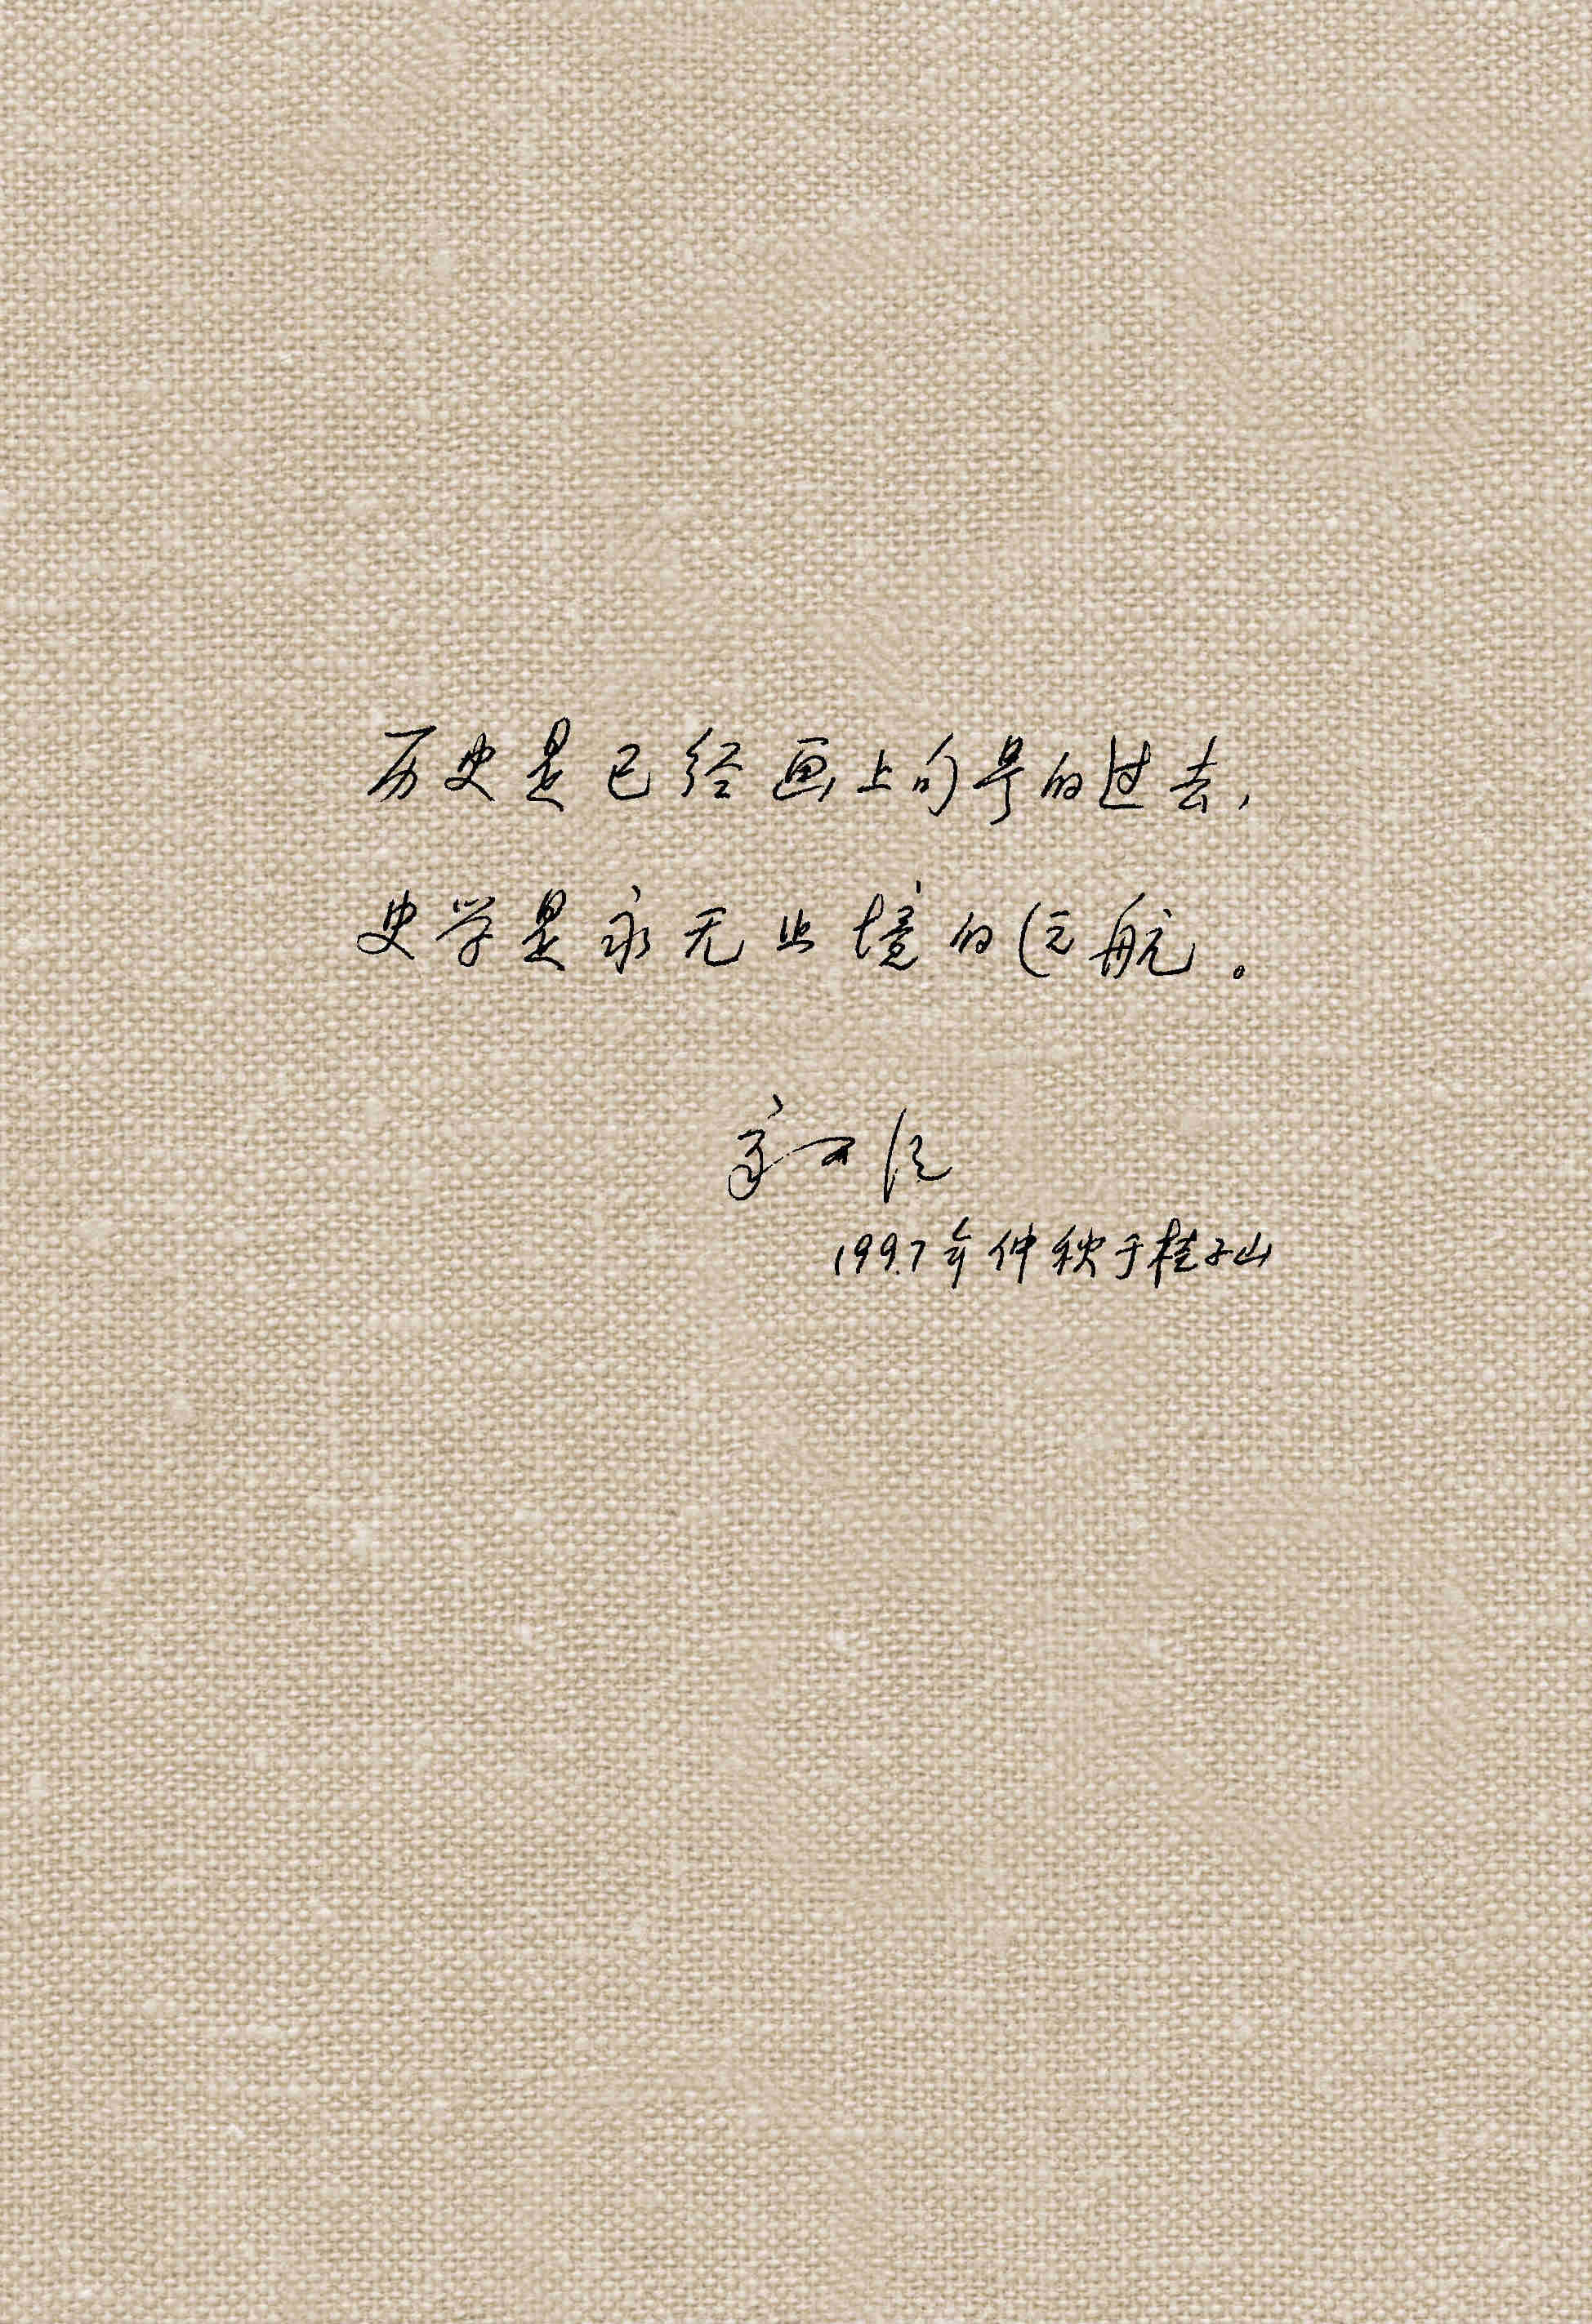 历史是已经画上句号的过去，
史学是永无止境的远航。
章开沅
1997年仲秋于桂子山